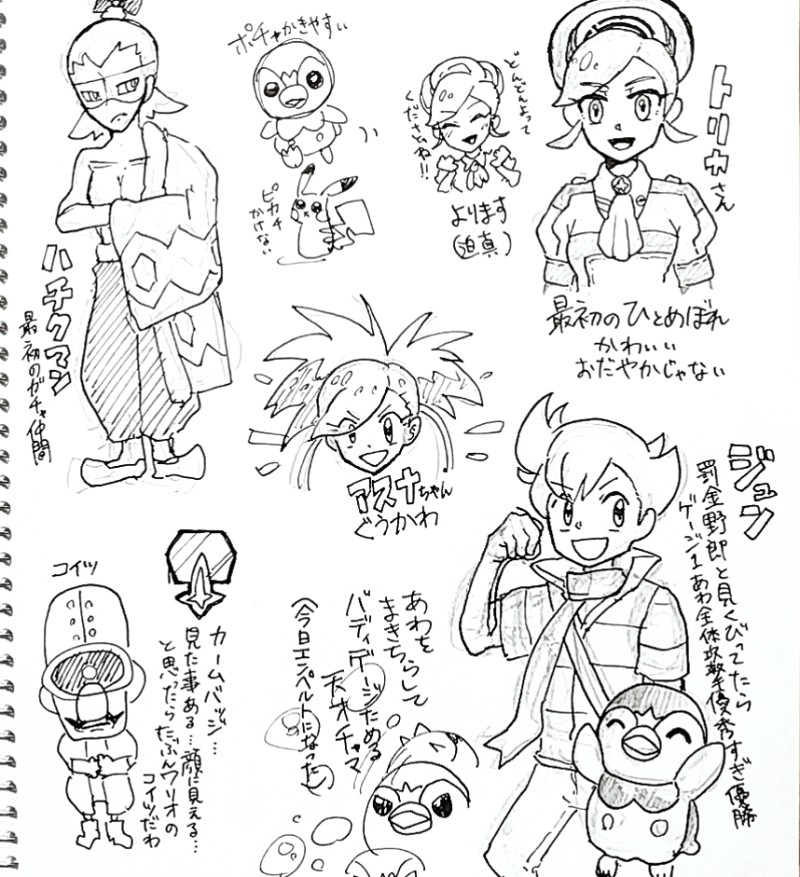 ポチャかきやすい
ピカチ
かけない
どんどんよって
くださいね!!
よります
(迫真)
トリカさん
最初のひとめぼれ
かわいい
おだやかじゃない
ハチクマン
最初のガチャ仲間
アスナちゃん
ぐうかわ
ジュン
罰金野郎と見くびってたら
ゲージ1あわ全体攻撃優秀すぎ優勝
コイツ
カームバッジ…
見た事ある…顔に見える…
と思ったらたぶんワリオの
コイツだわ
あわを
まきちらして
バディゲージためる
天才チャマ
(今日エンペルトになった)